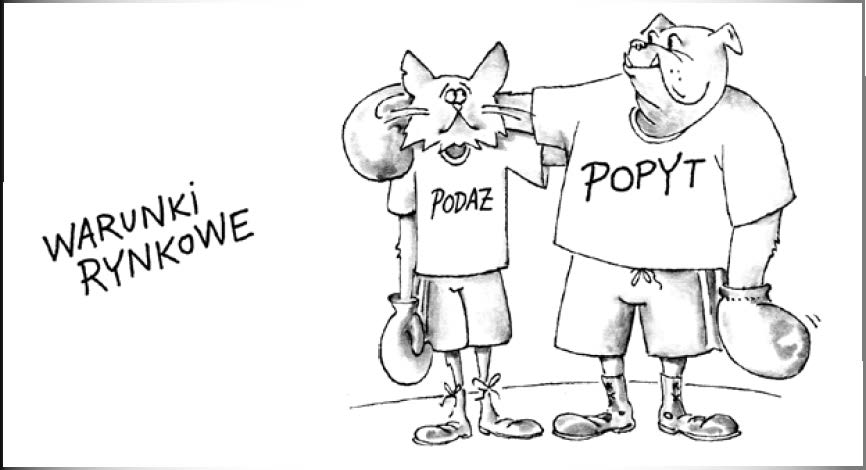 WARUNKi
RYNKOWE
PODAZ
POPYT